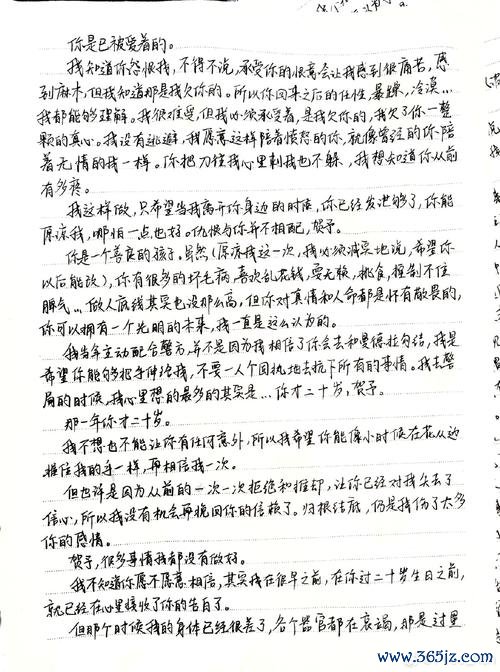 你是已被爱着的。
我知道你怨恨我，不得不说，承受你的恨意会让我感到很痛苦，感
到麻木，但我知道那是我欠你的。所以你回来之后的任性、暴躁、冷漠…
我都能够理解。我很难受，但我必须承受着，是我欠你的，我欠了你一整
颗的真心。我没有逃避，我愿意这样陪着愤怒的你，就像曾经的你陪
着无情的我一样。你把刀往我心里刺我也不躲，我想知道你从前
有多疼。
我这样做，只希望当我离开你身边的时候，你已经发泄够了，你能
原谅我，哪怕一点也好。仇恨与你并不相配，贺予。
你是一个善良的孩子。虽然（原谅我这一次，我必须诚实地说，希望你
以后能改），你有很多的坏毛病，喜欢乱花钱，耍无赖，挑食，控制不住
脾气…做人底线其实也没那么高，但你对真情和人命都是怀有敬畏的，
你可以拥有一个光明的未来，我一直是这么认为的。
我当年主动配合警方，并不是因为我相信了你会去和曼德拉勾结，我是
希望你能够把手伸给我，不要一个人固执地去抗下所有的事情。我去警
局的时候，我心里想的最多的其实是…你才二十岁，贺予。
那一年你才二十岁。
我不想也不能让你有任何意外，所以我希望你能像小时候在花丛边
握住我的手一样，再相信我一次。
但也许是因为从前的一次一次拒绝和推却，让你已经对我失去了
信心，所以我没有机会再挽回你的信赖了。归根结底，仍是我伤了太多
你的感情。
贺予，很多事情我都没有做好。
我不知道你愿不愿意相信，其实我在很早之前，在你过二十岁生日之前，
就已经在心里接收了你的告白了。
但那个时候我的身体已经很差了，各个器官都在衰竭，那是过里
www.365jz.com